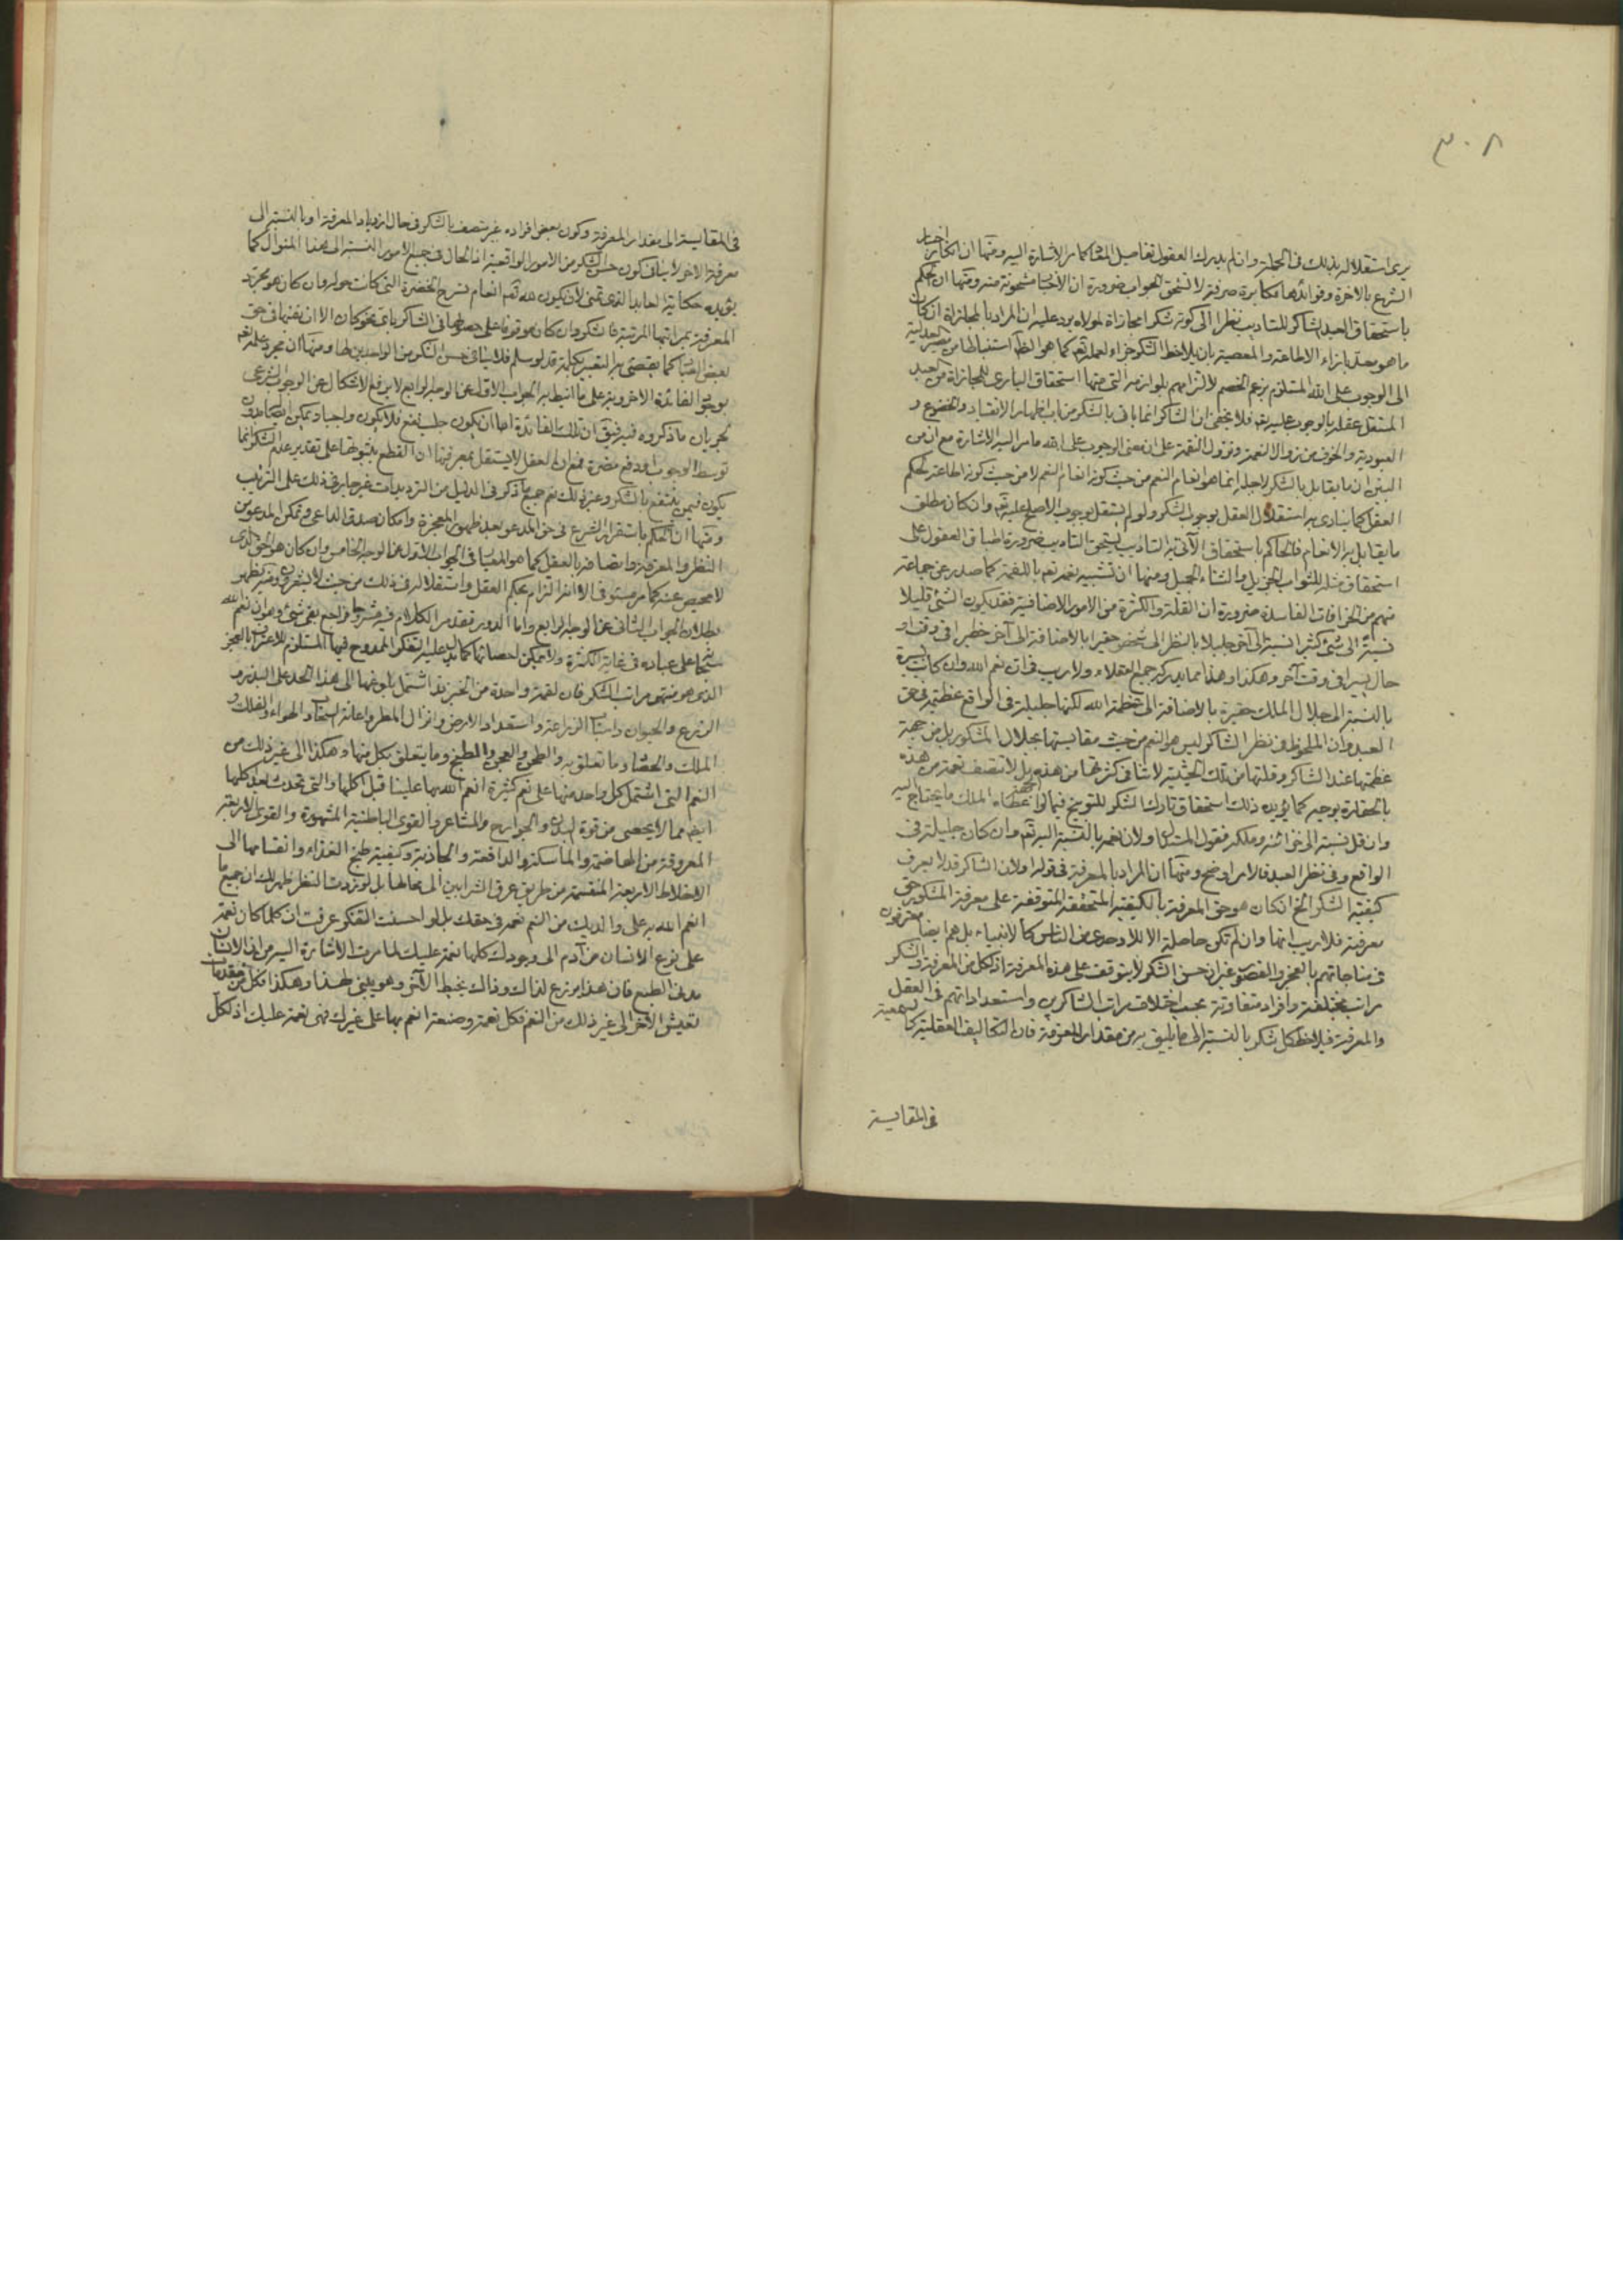 ٣٠٨
يرى استقلاله بذلك في الجملة وان لم يدرك العقول تفاصيل المقامات كما مر الاشارة اليه ومنها ان انكار اخبار
الشرع بالاخرة وفوائدها مكابرة صرفة لا تستحق الجواب ضرورة ان الاخبار مشحونة منه ومنها ان الحكم
باستحقاق العبد الشاكر للتاديب نظرا الى كونه شكرا مجازاة لمولاه يرد عليه ان المراد بالمجازاة ان كان
ما هو معد بازاء الاطاعة والمعصية بان يلاحظ الشكر جزاء لعمله تعالى كما هو الظاهر استنباطا من
الى الوجوب على الله المستلزم بزعم الخصم لالتزامهم بلوازمه التي منها استحقاق الباري للمجازاة من العبد
المستقل عقله بالوجوب عليه فلا يخفى ان الشاكر انما ياتى بالشكر من باب اظهار الانقياد والخضوع و
العبودية والخوف من زوال النعمة ونزول النقمة على ان معنى الوجوب على الله ما مر اليه الاشارة مع ان من
البين ان ما يقابل بالشكر لاجله انما هو انعام المنعم من حيث كونه انعام المنعم لا من حيث كونه اطاعة لحكم
العقل كما ينادى به استقلال العقل بوجوب الشكر ولو لم يستقل بوجوب الاصلح عليه تعالى وان كان مطلق
ما يقابل به الانعام فالحاكم باستحقاق الآتى به التاديب يستحق التاديب ضرورة اطباق العقول على
استحقاق مثله للثواب الجزيل والثناء الجميل ومنها ان تشبيه نعمه تعالى باللقمة كما صدر عن جماعة
منهم من الخرافات الفاسدة ضرورة ان القلة والكثرة من الامور الاضافية فقد يكون الشئ قليلا
نسبة الى شئ كثيرا نسبة الى آخر جليلا بالنظر الى شخص حقيرا بالاضافة الى آخر خطيرا في وقت او
حال يسيرا في وقت آخر وهكذا وهذا مما يدركه جميع العقلاء ولا ريب في ان نعم الله وان كانت يسيرة
بالنسبة الى جلال الملك حقيرة بالاضافة الى عظمة الله لكنها جليلة في الواقع عظيمة في حق
العبد وان الملحوظ في نظر الشاكر ليس هو النعم من حيث مقايستها بجلال المشكور بل من جهة
عظمتها عند الشاكر وقلتها من تلك الحيثية لا تنافى كثرتها من هذه بل لا تتصف نعمة من هذه
بالحقارة بوجه كما يؤيد ذلك استحقاق تارك الشكر للتوبيخ فيما لو اعطاه الملك ما يحتاج اليه
وان قل نسبة الى خزائنه وملكه فقول المستدل ولان نعمه بالنسبة اليه تعالى وان كان جليلة في
الواقع وفى نظر العبد فالامر اوضح ومنها ان المراد بالمعرفة في قوله اولان الشاكر قد لا يعرف
كيفية الشكر الخ ان كان هو حق المعرفة بالكيفية المتحققة المتوقفة على معرفة المشكور حق
معرفته فلا ريب انها وان لم تكن حاصلة الا للاوحدى من الناس كالانبياء بل هم ايضا معترفون
في مناجاتهم بالعجز والقصور غير ان حسن الشكر لا يتوقف على هذه المعرفة اذ لكل من المعرفة والشكر
مراتب مختلفة وافراد متفاوتة بحسب اختلاف مراتب الشاكرين واستعداداتهم في العقل
والمعرفة فيلاحظ كل شكر بالنسبة الى ما يليق به من مقدار المعرفة فان التكاليف العقلية كالسمعية
في المقايسة
في المقايسة الى مقدار المعرفة وكون بعض افراده غير متصف بالشكر في حال ازدياد المعرفة او بالنسبة الى
معرفة الاخر لا ينافى كون حسن الشكر من الامور الواقعية اذ الحال في جميع الامور النسبية الى هذا المنوال كما
يؤيده حكاية العابد الذى تمنى لان يكون لله تعالى انعام تسرح الخضرة التي كانت حوله وان كان هو مجرد
المعرفة بمراتبها المرتبة فالشكر وان كان موقوفا على حصولها في الشاكر باى نحو كان الا ان نفيها في حق
لبعض العباد كما يقتضى به التعبير بكلمة قد لو سلم فلا ينافى حسن الشكر من الواجدين لها ومنها ان مجرد
بوجود الفائدة الاخروية على ما انيط به الجواب الاول عن الوجه الرابع لا يرفع الاشكال عن الوجوب الشرعى
لجريان ما ذكروه فيه فيق ان تلك الفائدة اما ان يكون جلب نفع فلا يكون واجبا
توسط الوجوب او دفع مضرة فمع ان العقل لا يستقل بمعرفتها ان القطع بثبوتها على تقدير عدم الشكر انما
يكون فيمن ينتفع بالشكر وغير ذلك نعم جميع ما ذكر في الدليل من الترديدات غير جار في ذلك على الترتيب
ومنها ان الحكم باستقرار الشرع في حق المدعو بعد ظهور المعجزة وامكان صدق الداعى وتمكن المدعو من
النظر والمعرفة
لا محيص عنه كما مر مستوفى الا انه التزام بحكم العقل واستقلاله في ذلك من حيث لا يشعرون ومنه يظهر
بطلان الجواب الثانى عن الوجه الرابع واما الدور فقد مر الكلام فيه مشروحا فراجع بقى شئ وهو ان نعم الله
سبحانه على عباده في غاية الكثرة ولا يمكن احصائها كما يدل عليه التفكر الممدوح فيها المستلزم للاعتراف بالعجز
الذى هو منتهى مراتب الشكر فان لقمة واحدة من الخبز قد اشتمل بلوغها الى هذا الحد على البذر و
الزرع والحيوان واسباب الزراعة واستعداد الارض وانزال المطر واعانة السحاب والهواء والفلك و
الملك والحصاد وما تعلق به والطحن والعجن والطبخ وما يتعلق بكل منها وهكذا الى غير ذلك من
النعم التى اشتمل كل واحد منها على نعم كثيرة انعم الله بها علينا قبل اكلها والتى تحدث بعد اكلها
ايضا مما لا يحصى من قوة البلع والجوارح والمشاعر والقوى الباطنية المشهورة والقوى الاربعة
المعروفة من الهاضمة والماسكة والدافعة والجاذبة وكيفية طبخ الغذاء وانقسامها الى
الاخلاط الاربعة المنقسمة من طريق عرق الشرابين الى محالها بل لو زدت النظر ظهر لك ان جميع ما
انعم الله به على والديك من النعم نعمة في حقك بل لو احسنت التفكر عرفت ان كلما كان نعمة
على نوع الانسان من آدم الى وجودك كلها نعمة عليك لما مرت الاشارة اليه من ان الانسان
مدنى الطبع فان هذا يزرع لذاك وذاك يخيط الآخر وهو يبنى لهذا وهكذا فكل من مقدمات
تعيش الآخر الى غير ذلك من النعم فكل نعمة وصنعة انعم بها على غيرك فهى نعمة عليك اذ لكل